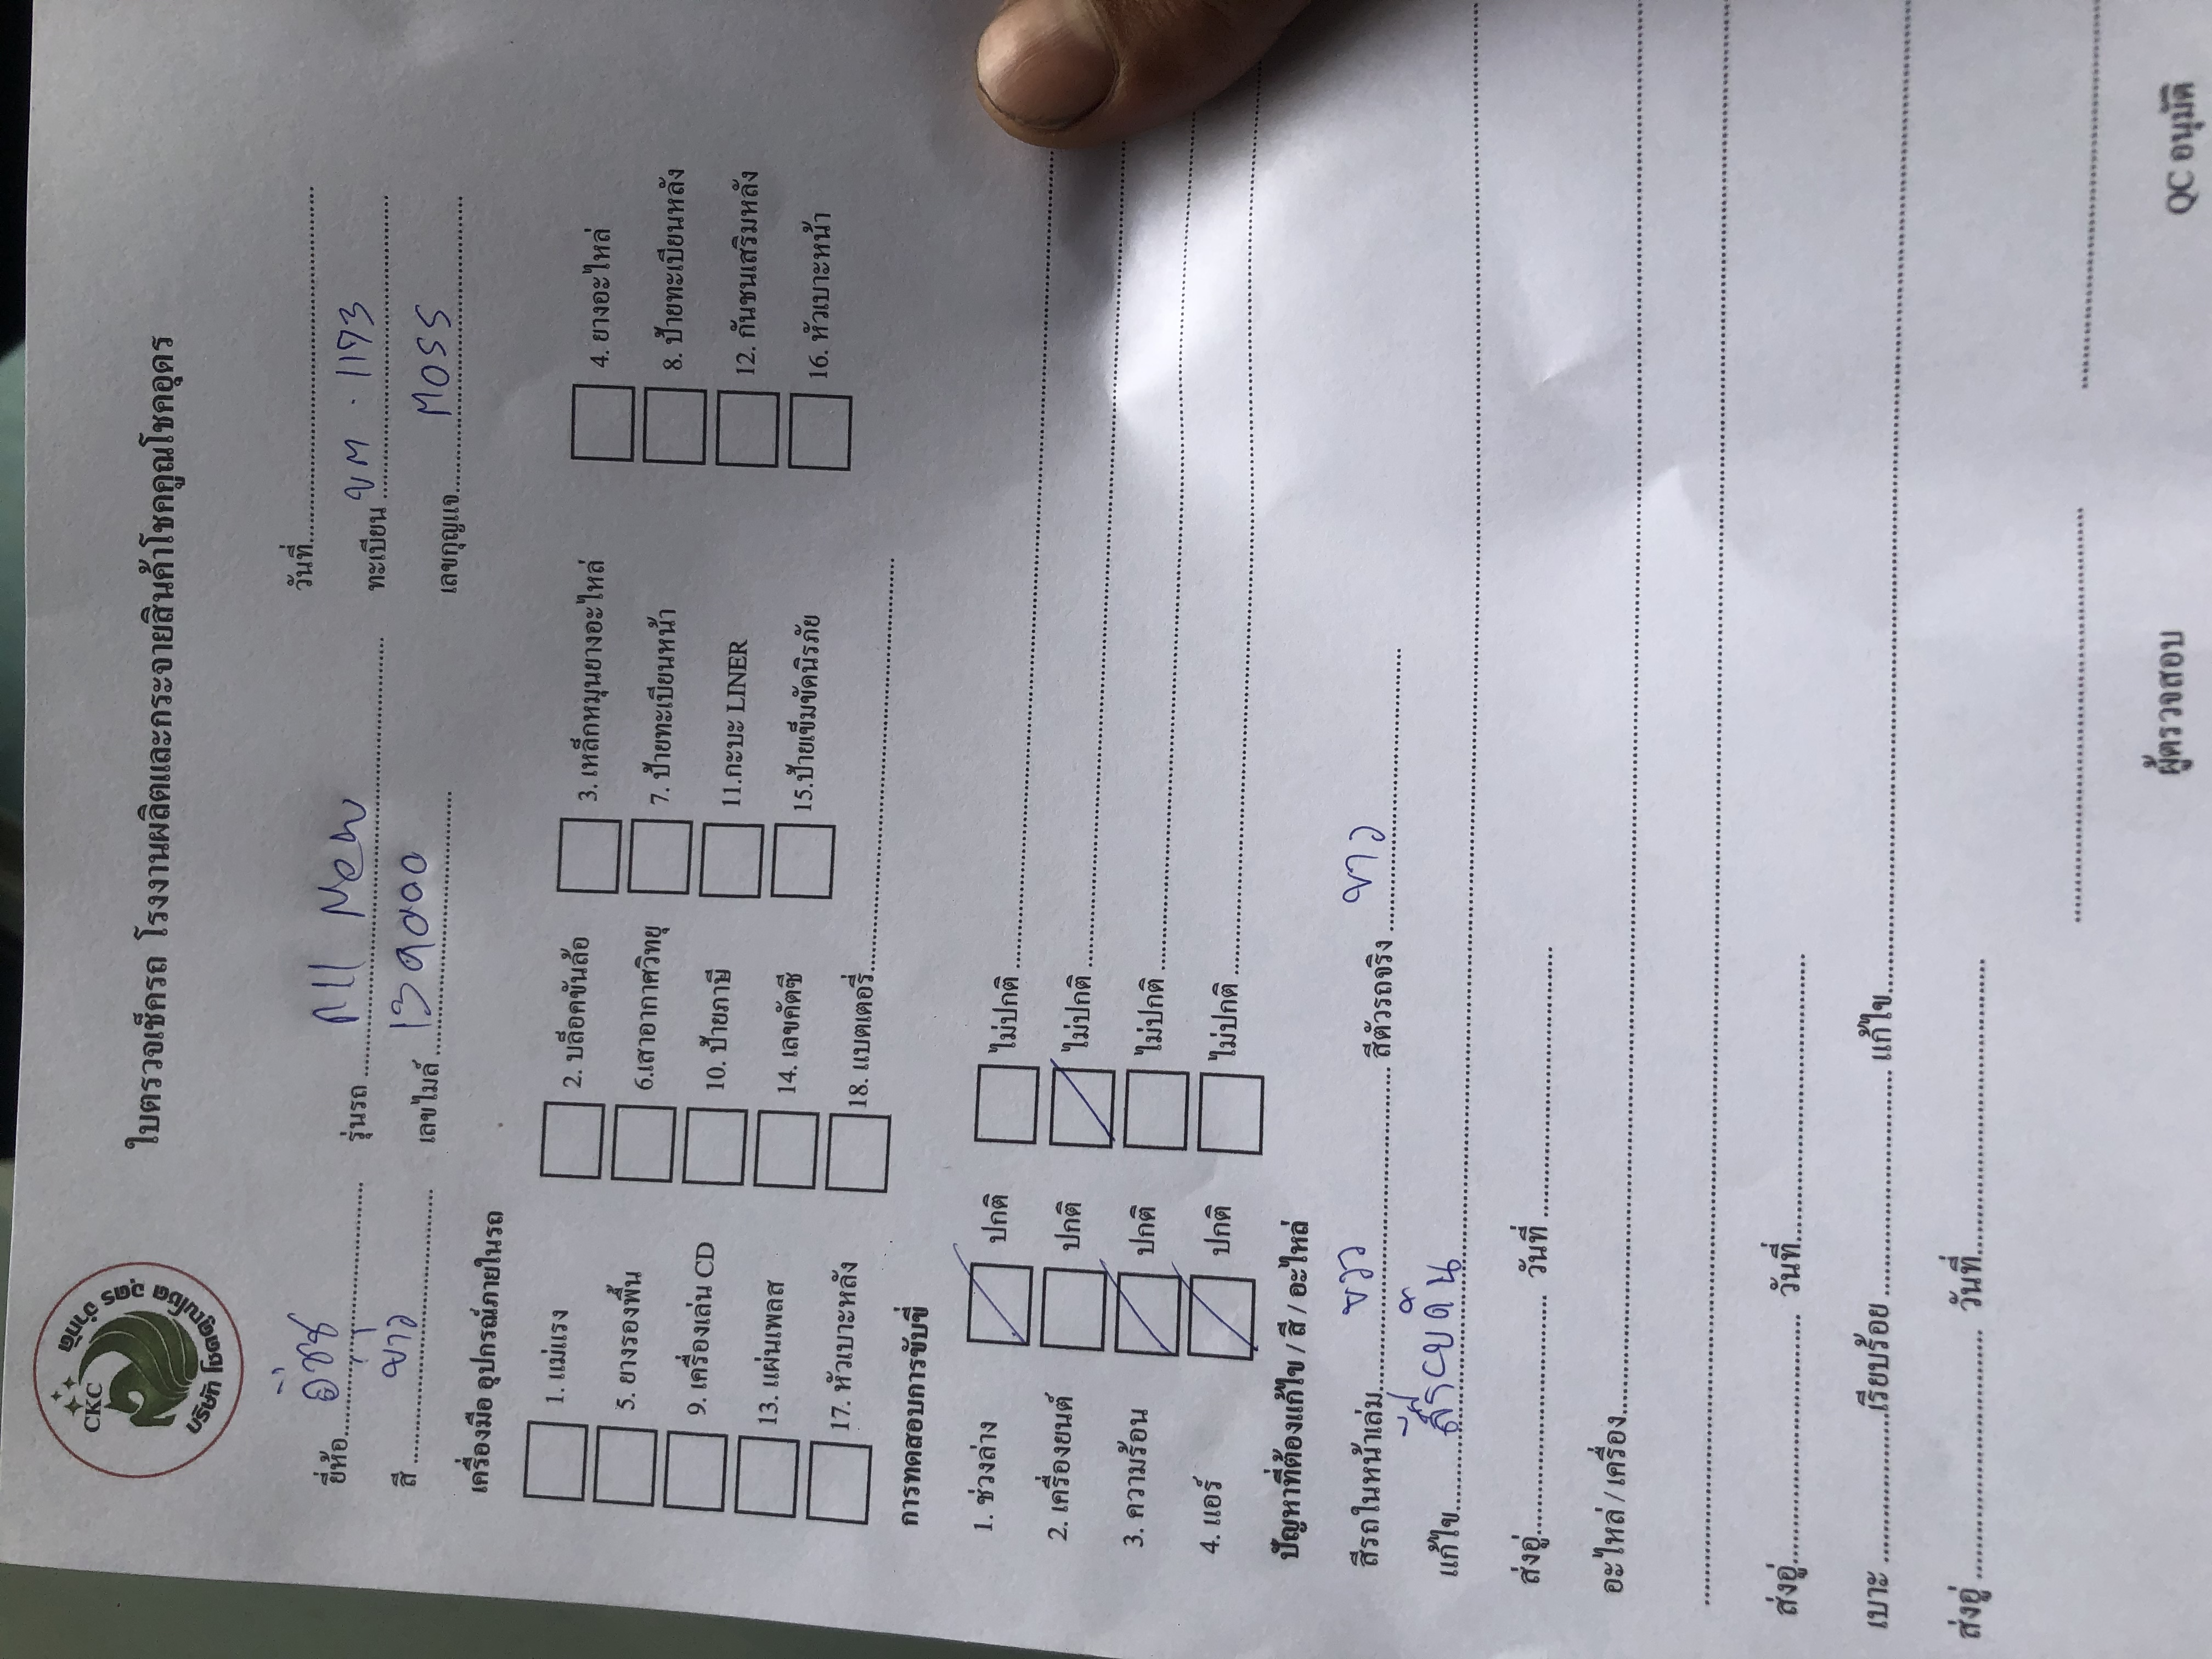 CKC
บริษัท โชคคูณโชค อุดร จำกัด
ใบตรวจเช็ครถ โรงงานผลิตและกระจายสินค้าโชคคูณโชคอุดร
วันที่
ยี่ห้อ อีซูซุ รุ่นรถ All New ทะเบียน ขต · 1173
สี ขาว เลขไมล์ 139000 เลขกุญแจ M055
เครื่องมือ อุปกรณ์ภายในรถ
1. แม่แรง 2. บล็อคขันล้อ 3. เหล็กหมุนยางอะไหล่ 4. ยางอะไหล่
5. ยางรองพื้น 6.เสาอากาศวิทยุ 7. ป้ายทะเบียนหน้า 8. ป้ายทะเบียนหลัง
9. เครื่องเล่น CD 10. ป้ายภาษี 11.กะบะ LINER 12. กันชนเสริมหลัง
13. แผ่นเพลส 14. เลขคัตซี 15.ป้ายเข็มขัดนิรภัย 16. หัวเบาะหน้า
17. หัวเบาะหลัง 18. แบตเตอรี่
การทดสอบการขับขี่
1. ช่วงล่าง ปกติ ไม่ปกติ
2. เครื่องยนต์ ปกติ ไม่ปกติ
3. ความร้อน ปกติ ไม่ปกติ
4. แอร์ ปกติ ไม่ปกติ
ปัญหาที่ต้องแก้ไข / สี / อะไหล่
สีรถในหน้าเล่ม ขาว สีตัวรถจริง ขาว
แก้ไข
ส่งอู่ วันที่
อะไหล่ / เครื่อง
ส่งอู่ วันที่
เบาะ เรียบร้อย แก้ไข
ส่งอู่ วันที่
ผู้ตรวจสอบ QC อนุมัติ